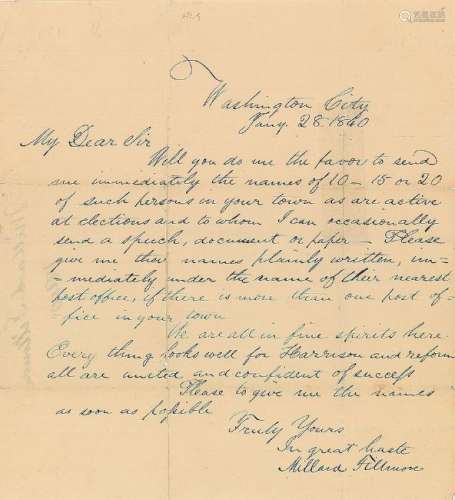 Washington City
Jany. 28 1840
My Dear Sir
Will you do me the favor to send
me immediately the names of 10 – 15 or 20
of such persons in your town as are active
at elections and to whom I can occasionally
send a speech, document or paper — Please
give me their names plainly written, im-
-mediately under the name of their nearest
post office, if there is more than one post of-
fice in your town
We are all in fine spirits here.
Every thing looks well for Harrison and reform
all are united and confident of success
Please to give me the names
as soon as possible
Truly Yours
In great haste
Millard Fillmore